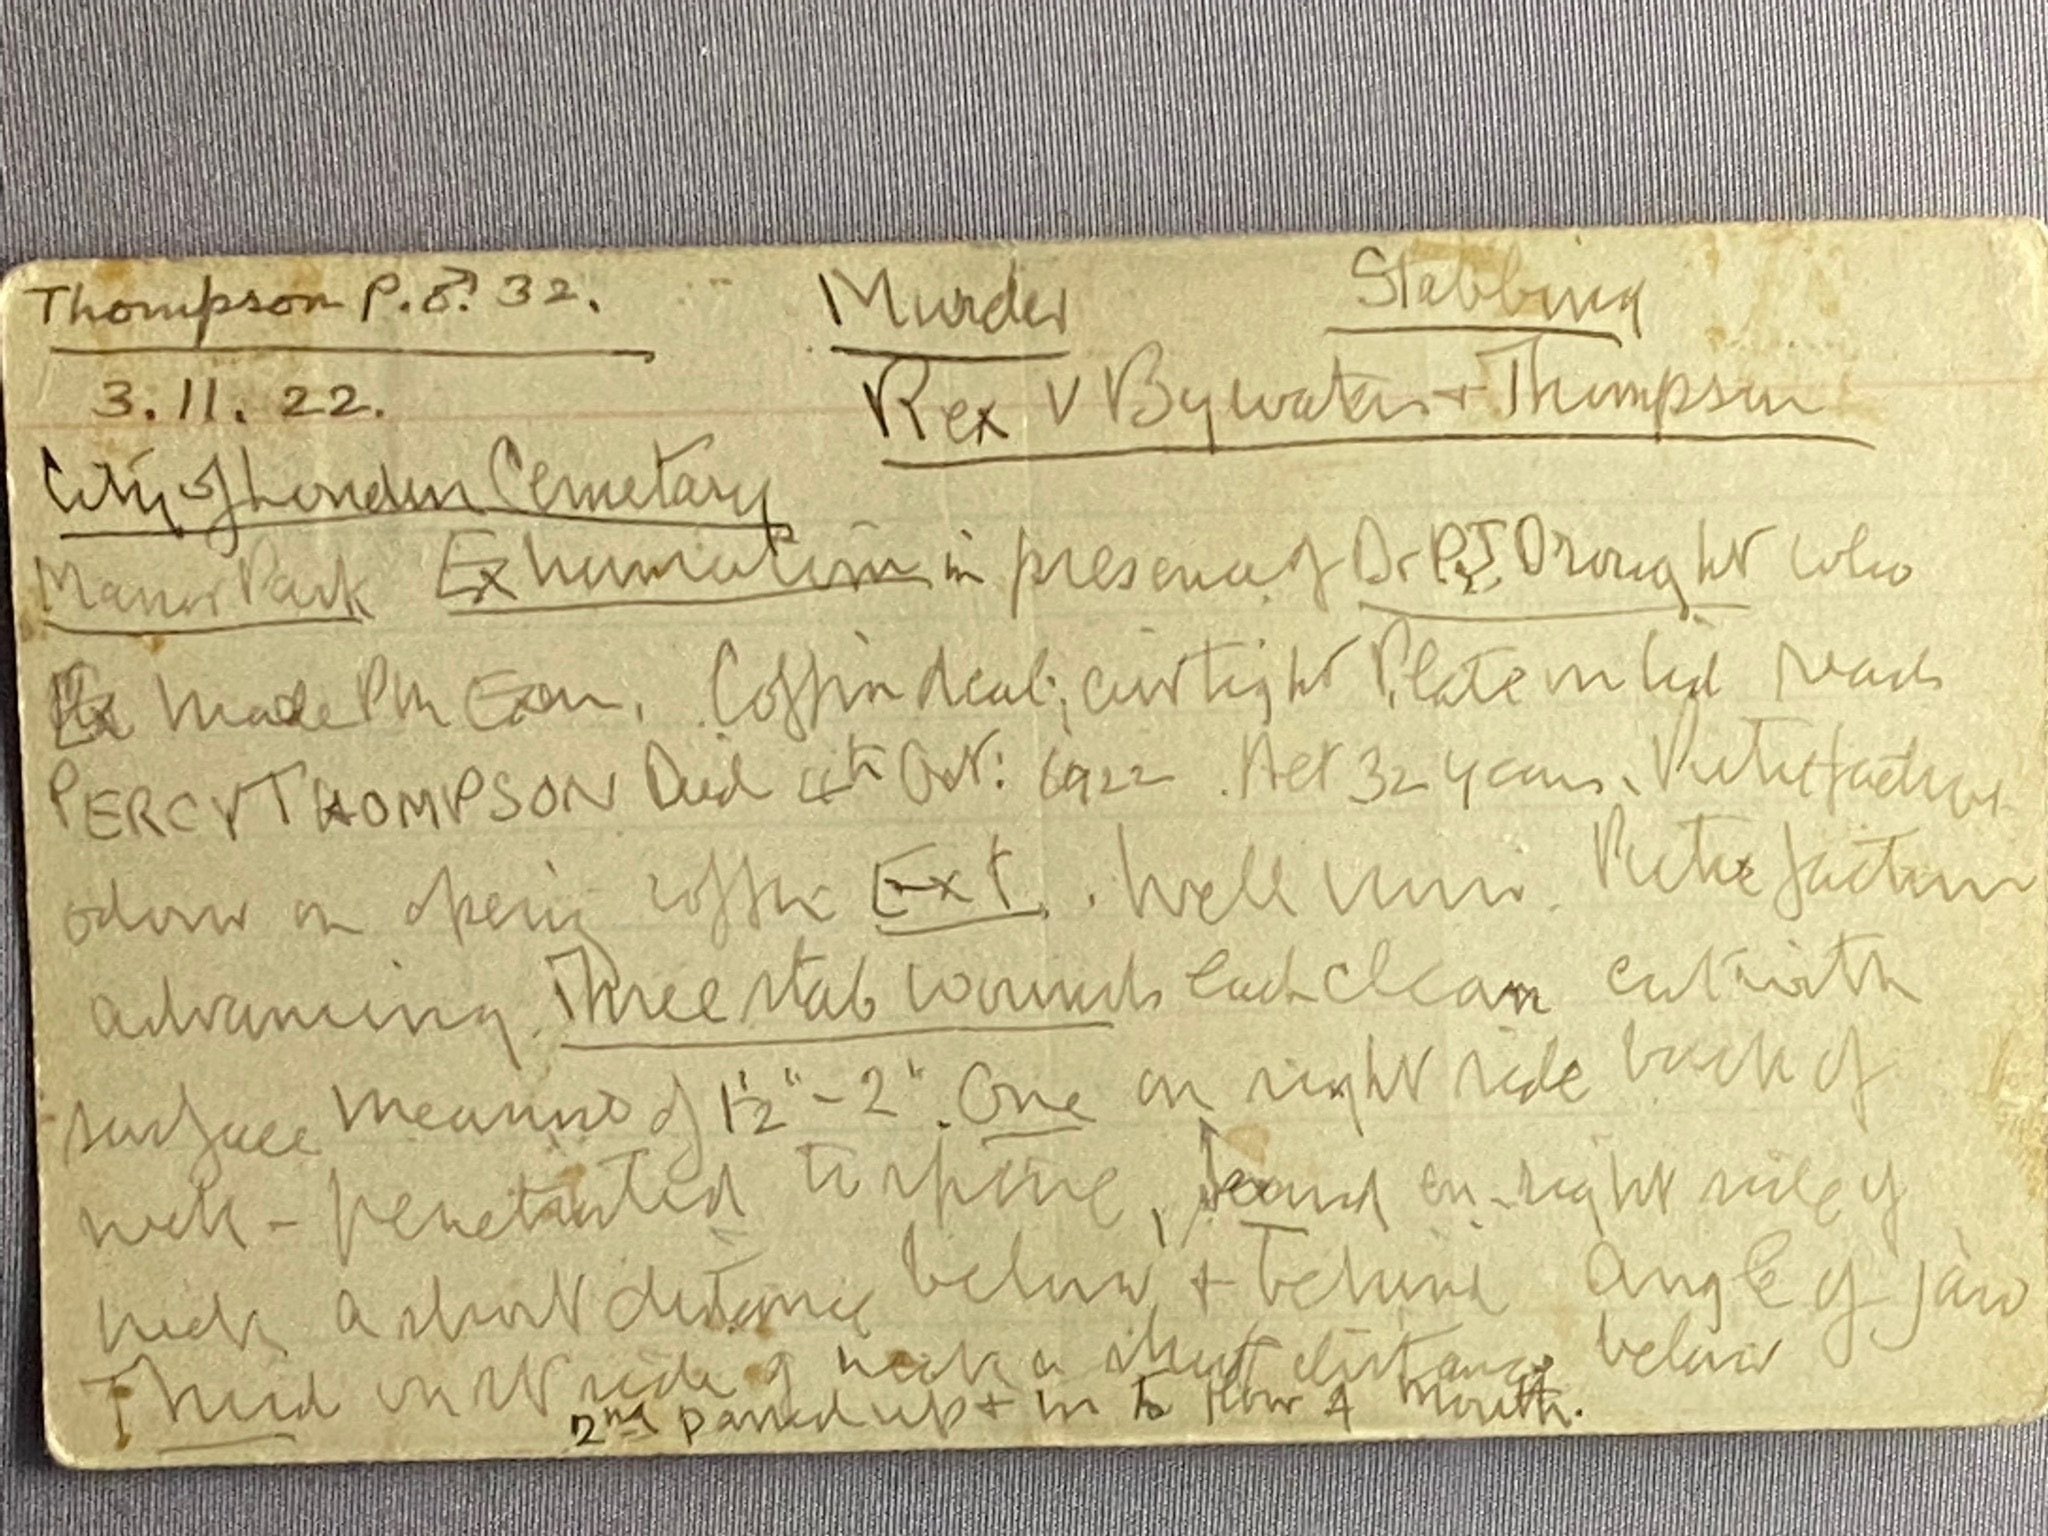 Thompson P. ♂. 32. Murder Stabbing
3. 11. 22. Rex v Bywaters + Thompson
City of London Cemetary
Manor Park Exhumation in presence of Dr P.J. Drought who
made PM Exam. Coffin deal; airtight Plate on lid reads
PERCY THOMPSON Died 4th Oct: 1922. Aet 32 years. Putrefactive
odour on opening coffin Ext. Well nour. Putrefaction
advancing. Three stab wounds each clean cut with
surface measmts of 1½" - 2". One on right side back of
neck - penetrated to spine, Second on right side of
neck a short distance below + behind angle of jaw
Third on rt side of neck a short distance below
2nd passed up + in to floor of mouth.